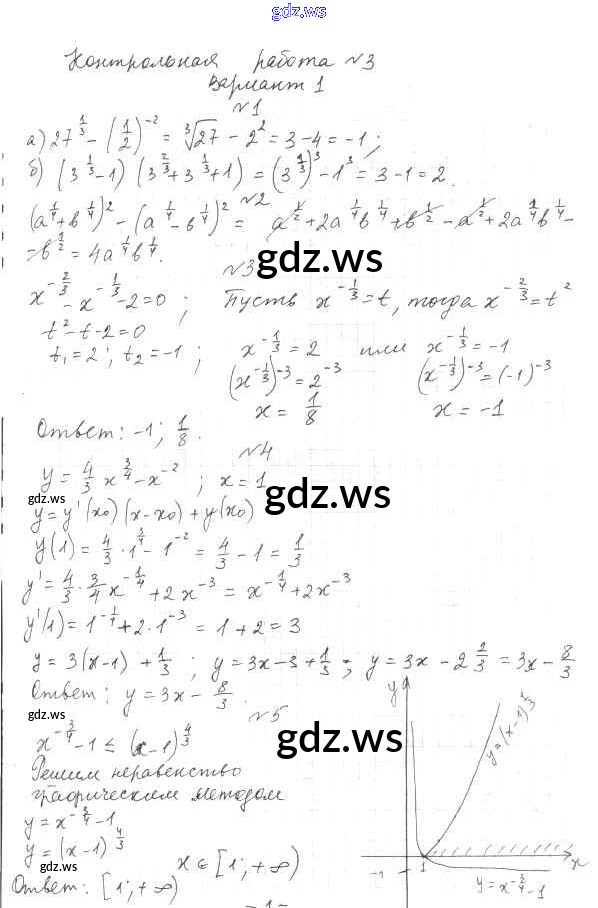 gdz.ws
Контрольная работа №3
Вариант 1
№1
а) 27^{1/3} - (1/2)^{-2} = ∛27 - 2^2 = 3 - 4 = -1;
б) (3^{1/3} - 1)(3^{2/3} + 3^{1/3} + 1) = (3^{1/3})^3 - 1^3 = 3 - 1 = 2.
№2
(a^{1/4} + b^{1/4})^2 - (a^{1/4} - b^{1/4})^2 = a^{1/2} + 2a^{1/4}b^{1/4} + b^{1/2} - a^{1/2} + 2a^{1/4}b^{1/4} -
- b^{1/2} = 4a^{1/4}b^{1/4}.
gdz.ws
№3
x^{-2/3} - x^{-1/3} - 2 = 0; Пусть x^{-1/3} = t, тогда x^{-2/3} = t^2
t^2 - t - 2 = 0
t₁ = 2; t₂ = -1; x^{-1/3} = 2 или x^{-1/3} = -1
(x^{-1/3})^{-3} = 2^{-3} (x^{-1/3})^{-3} = (-1)^{-3}
x = 1/8 x = -1
Ответ: -1; 1/8.
№4
y = 4/3 x^{3/4} - x^{-2}; x = 1
gdz.ws
gdz.ws
y = y'(x₀)(x - x₀) + y(x₀)
y(1) = 4/3 · 1^{3/4} - 1^{-2} = 4/3 - 1 = 1/3
y' = 4/3 · 3/4 x^{-1/4} + 2x^{-3} = x^{-1/4} + 2x^{-3}
y'(1) = 1^{-1/4} + 2·1^{-3} = 1 + 2 = 3
y = 3(x-1) + 1/3; y = 3x - 3 + 1/3; y = 3x - 2 2/3 = 3x - 8/3
Ответ: y = 3x - 8/3.
gdz.ws
№5
x^{-3/4} - 1 ≤ (x-1)^{4/3}
gdz.ws
Решим неравенство
графическим методом
y = x^{-3/4} - 1
y = (x-1)^{4/3}
x ∈ [1; +∞)
gdz.ws
Ответ: [1; +∞)
y
y = (x-1)^{4/3}
x
-1
1
y = x^{-3/4} - 1